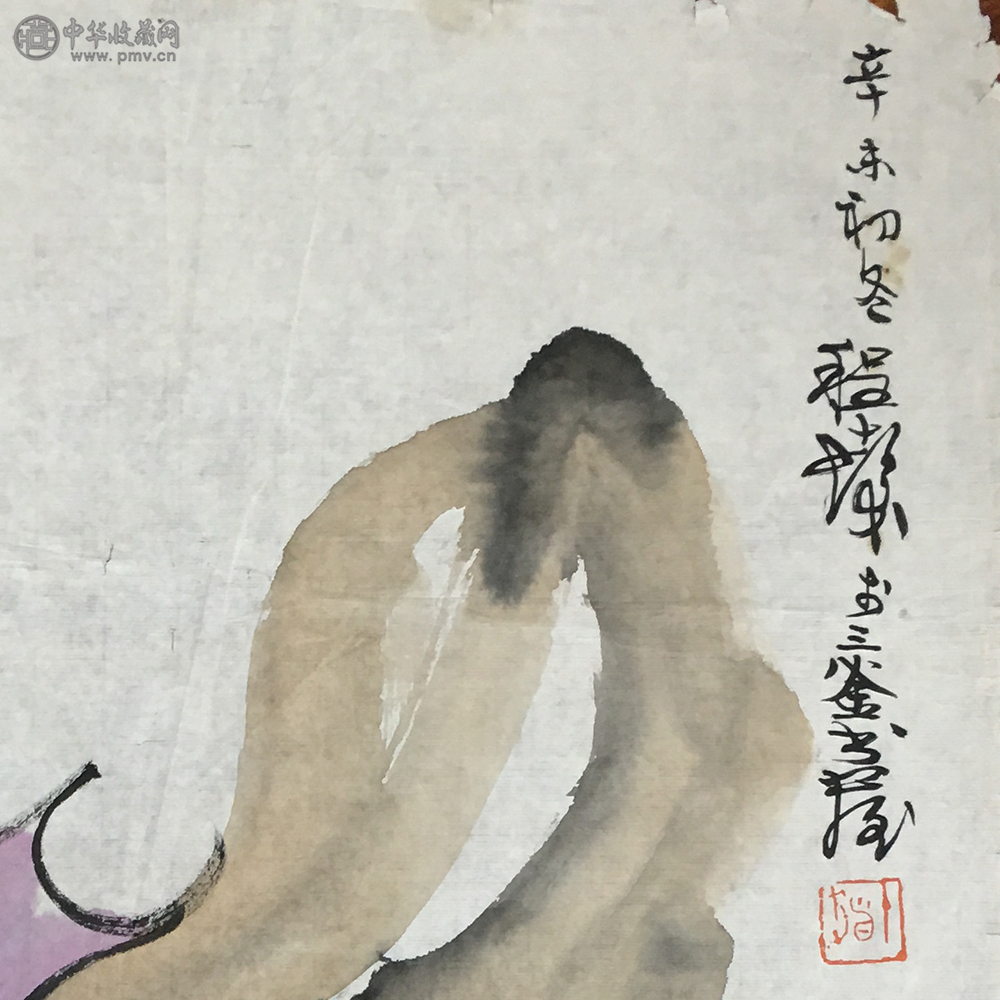 中华收藏网
www.pmv.cn
辛未初冬程十发于三釜书屋